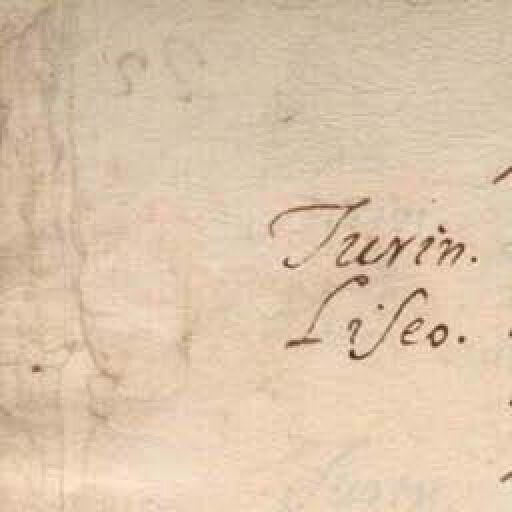 Turin.
Liſeo.